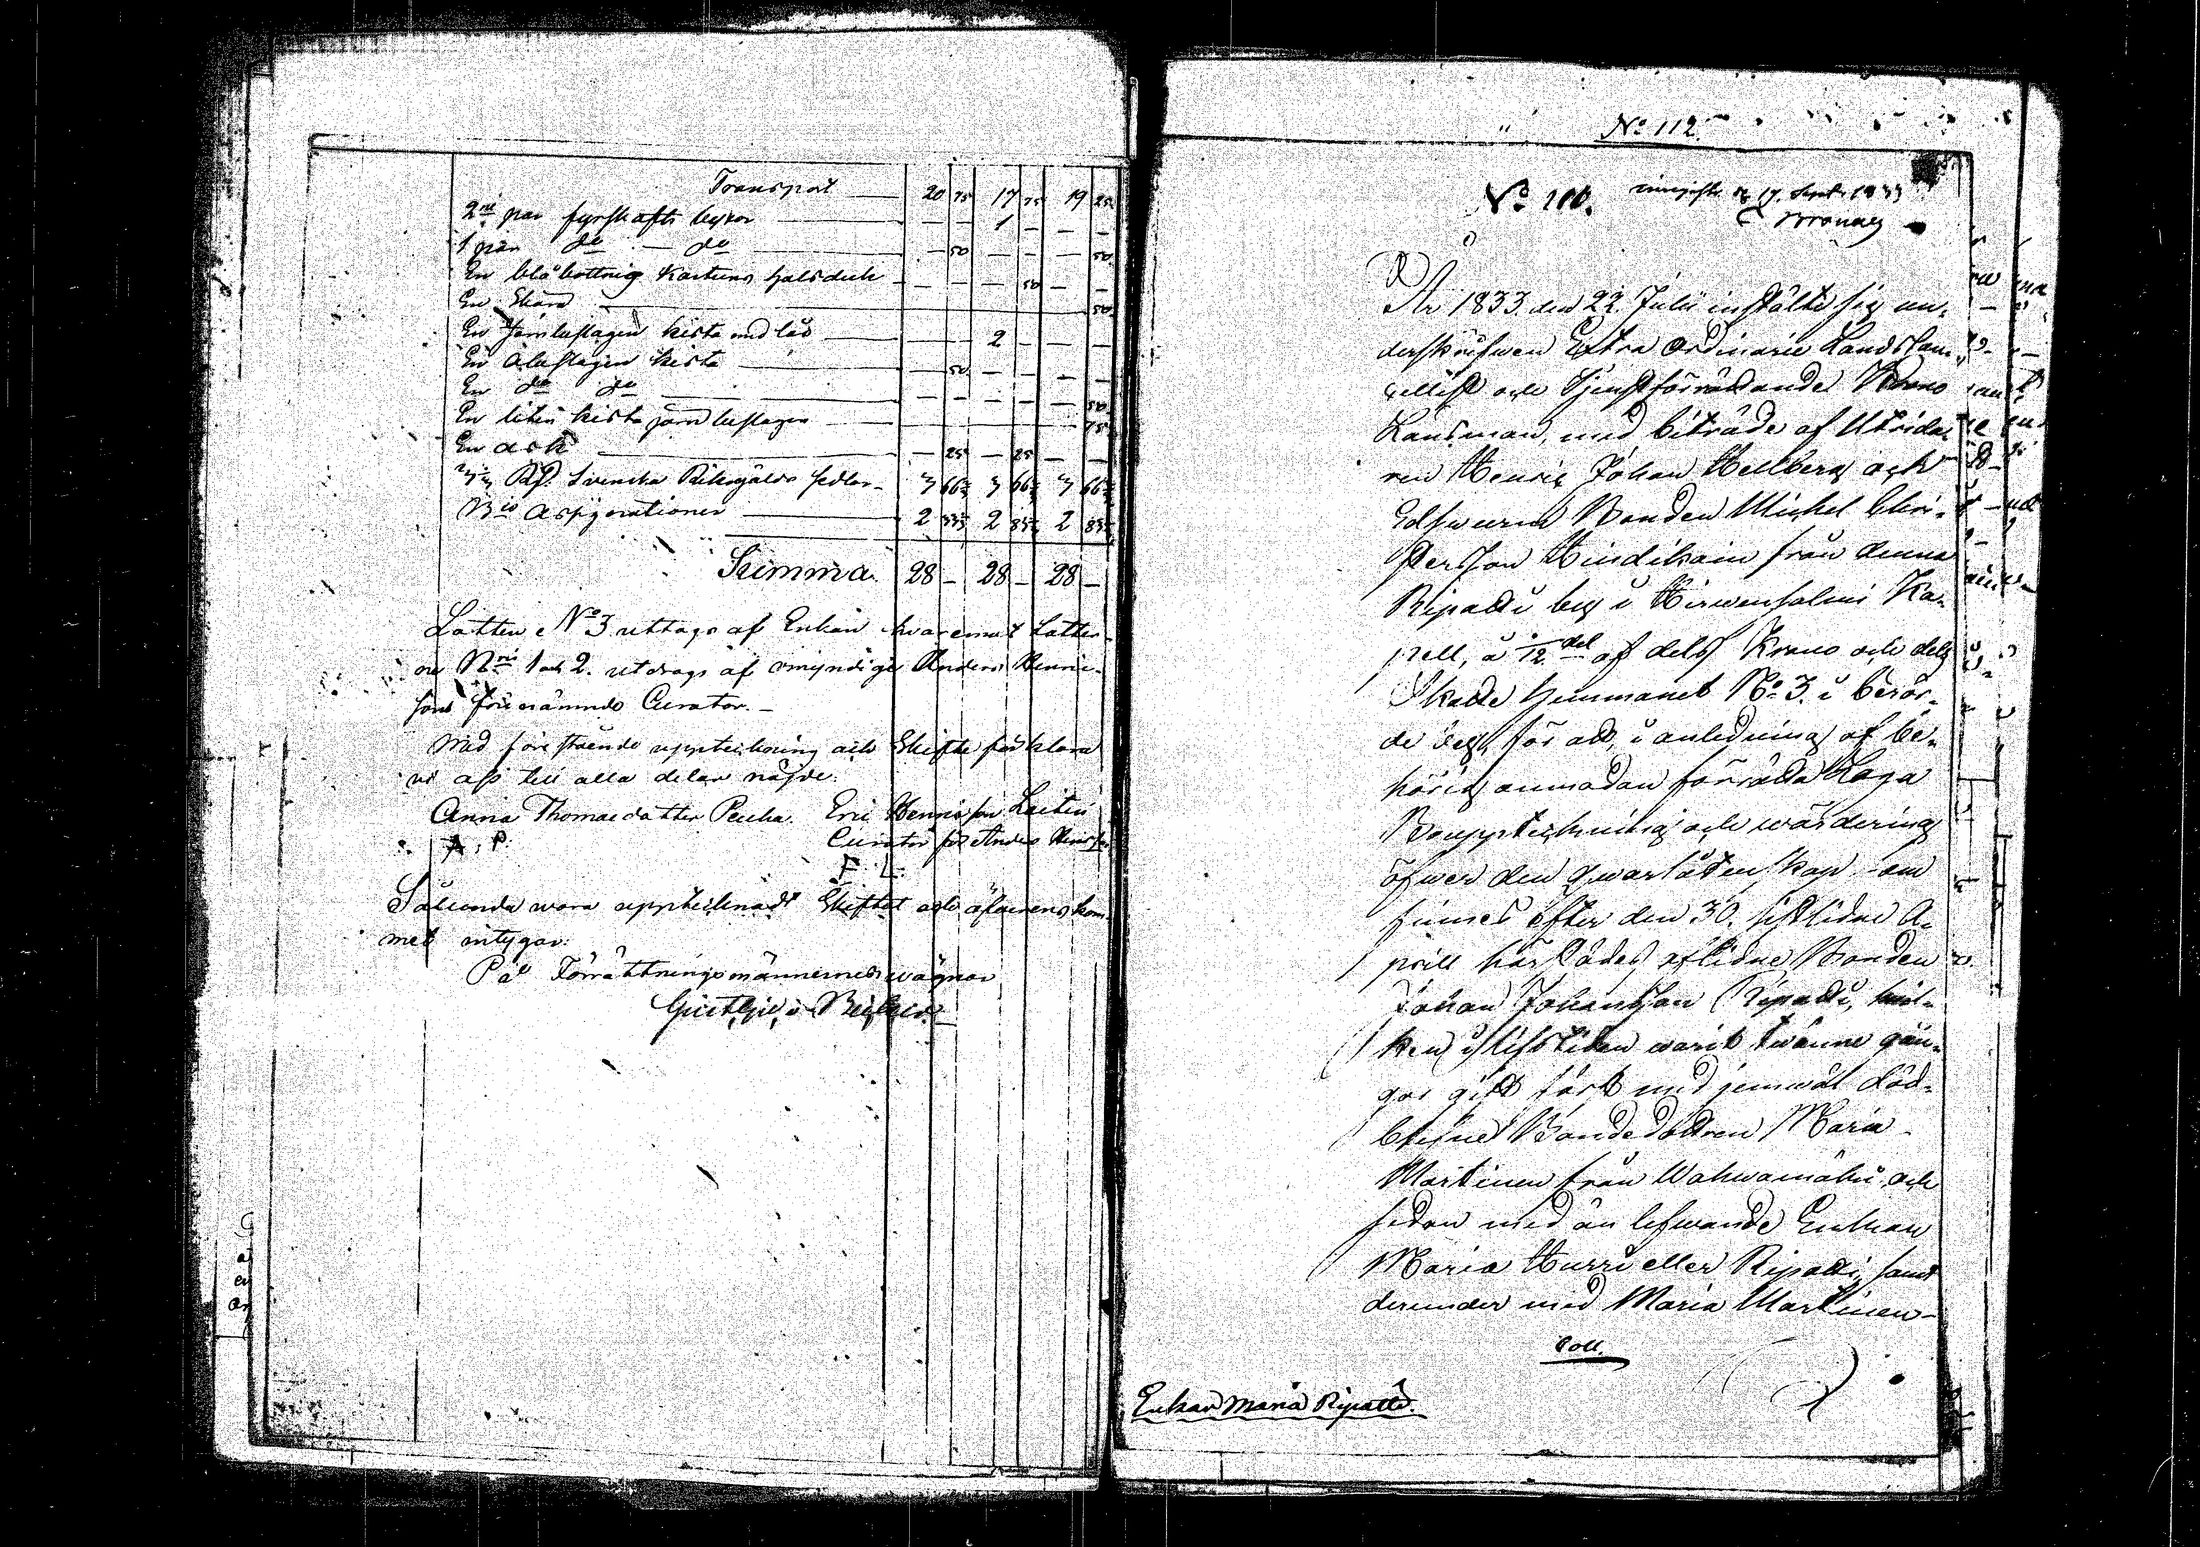 Transport 20 75 17 75 19 25
2ne par fyrskafts byxor — — 1 — — —
1 par do — do — 50 — — — 50
En blåbottnig Kartuns halsduk — — — 50 — —
En Skära 50
En Järnbeslagen kista med lås — — 2 — — —
En obeslagen kista — 50 — — — —
En do do — — — — — 50
En liten kista järnbeslagen 75
En ask — 25 — 25 — —
Svenska Riksgälds sedlar 66 66 66
2 2 2
Summa 28 — 28 — 28 —
Lotten No 3 uttogs af Enkan hvaremot Lotter-
ne Nris 1 och 2. utdrogs af omyndige Anders Henric-
sons förenämnde Curator. —
Med förestående uppteckning och Skifte förklara
vi oss till alla delar nöjde.
Anna Thomaedotter Eric Henricson Laitin
A. P. Curator för Anders Henricson
E. L.
Sålunda vara upptecknadt Skiftet och öfwerenskom-
met intygar:
På Förrättningsmännernes wägnar
No 112.
No 110. Sept. 1833
År 1833. den 22. Julii instälte sig un-
derskrifwen Extra Ordinarie Landskan-
cellist och tjenstförrättande Krono
Länsman, med biträde af Utrida-
ren Henric Johan Hellberg och
Edswurne Bonden Michel Chri-
sterson Hindikain från denna
Ripatti by i Hirwensalmi Ka-
pell, å /12 del af dels Krono och dels
Skatte hemmanet No 3. i berör-
de by, för att, i anledning af be-
hörig anmodan förrätta Laga
Bouppteckning och wärdering
öfwer den qwarlåtenskap som
finnes efter den 30. sistlidne A-
prill härstädes aflidne Bonden
Johan Johansson Ripatti, hwil-
ken i lifstiden warit twänne gån-
gor gift först med jemwäl död-
blefne Bondedottren Maria
Martinen från Wahwamäki, och
sedan med än lefwande Enkan
Maria Hurri eller Ripatti, samt
derunder med Maria Martinen
Enkan Maria Ripatti.